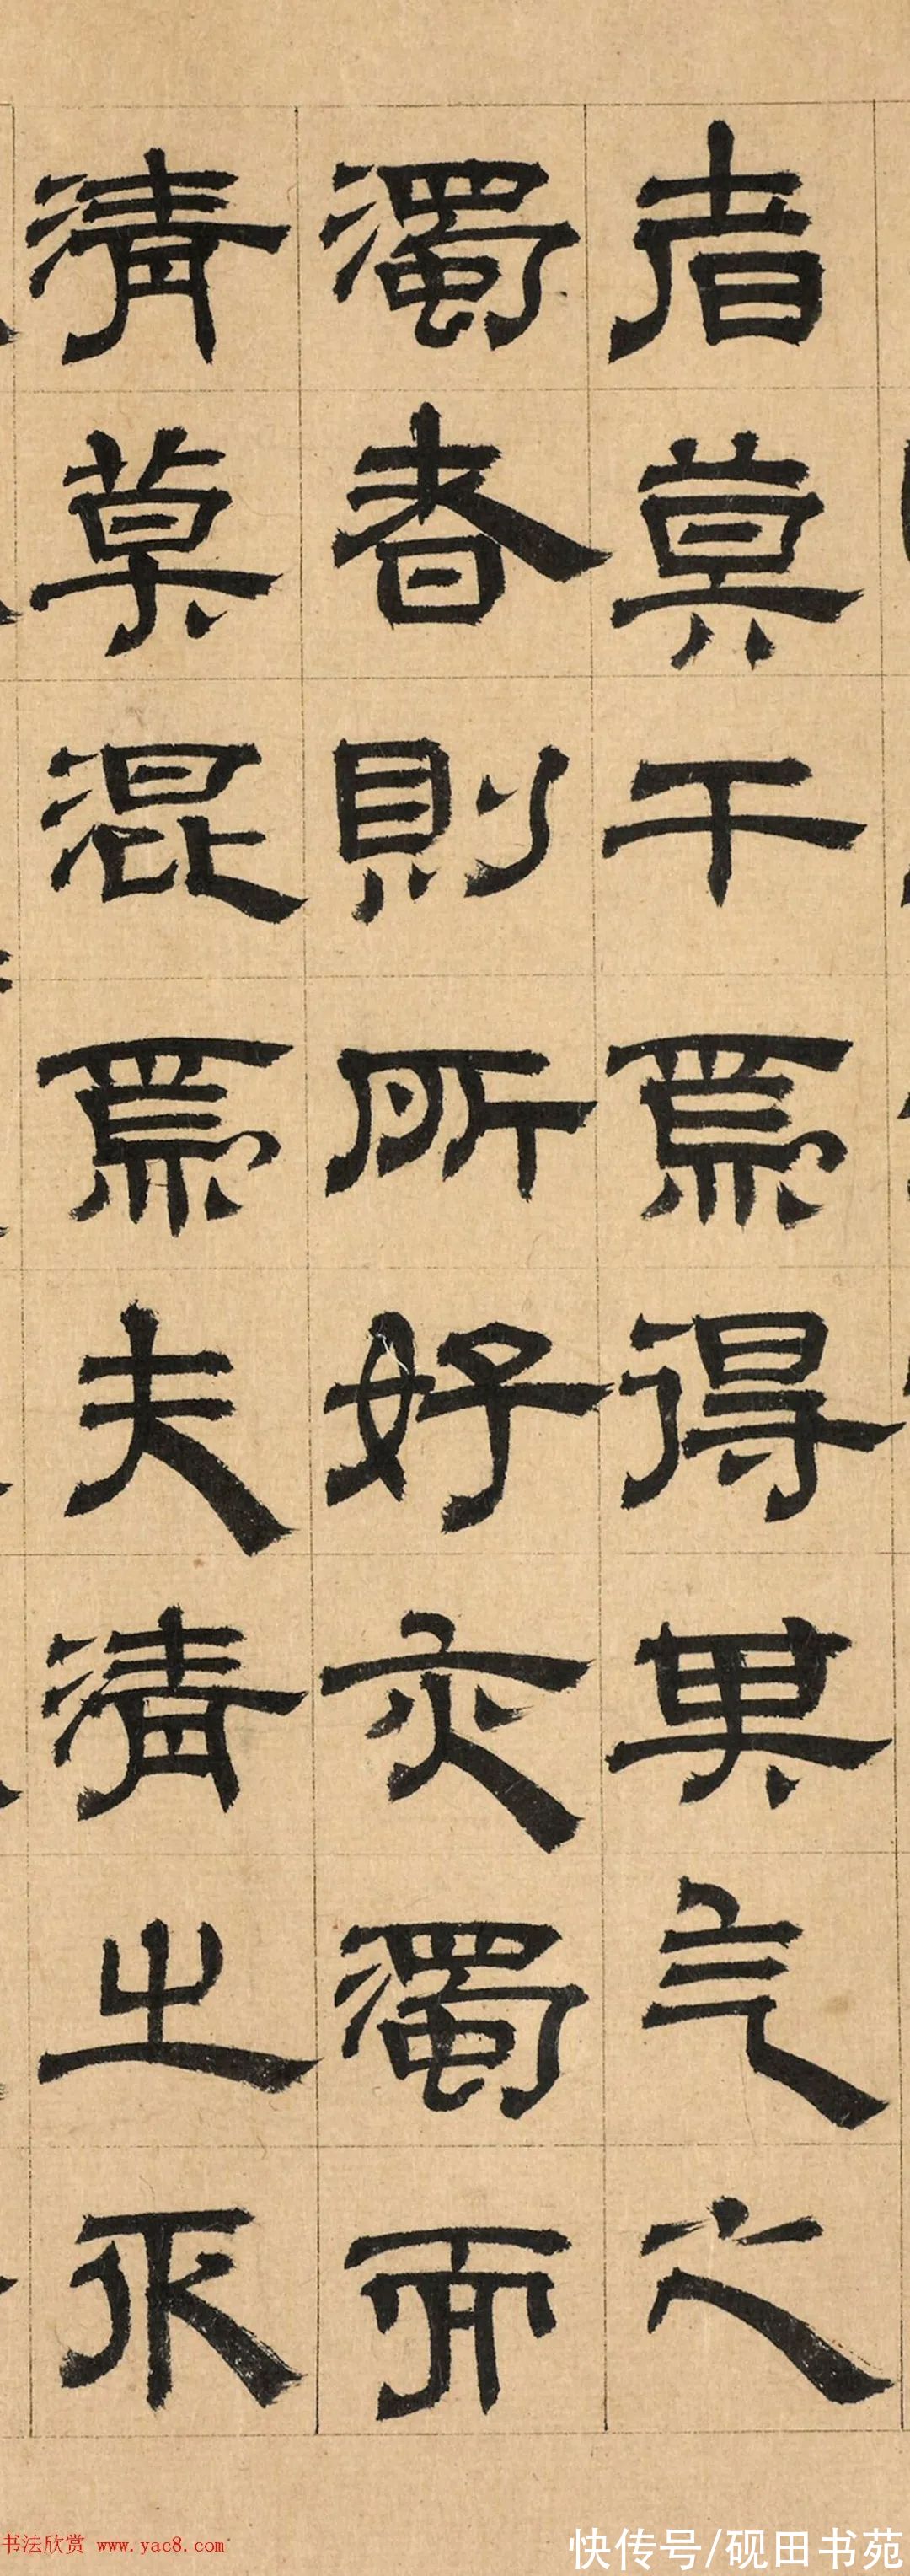 者莫干焉得其气之
濁者則所好亦濁而
清莫混焉夫清之
书法欣赏 www.yac8.com
快传号/砚田书苑